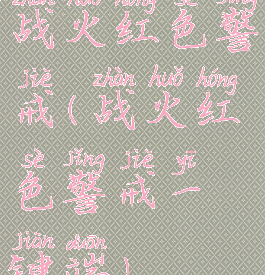 zhàn huǒ hóng sè jǐng
战火红色警
jiè zhàn huǒ hóng
戒(战火红
sè jǐng jiè yī
色警戒一
jiàn duān
键端)